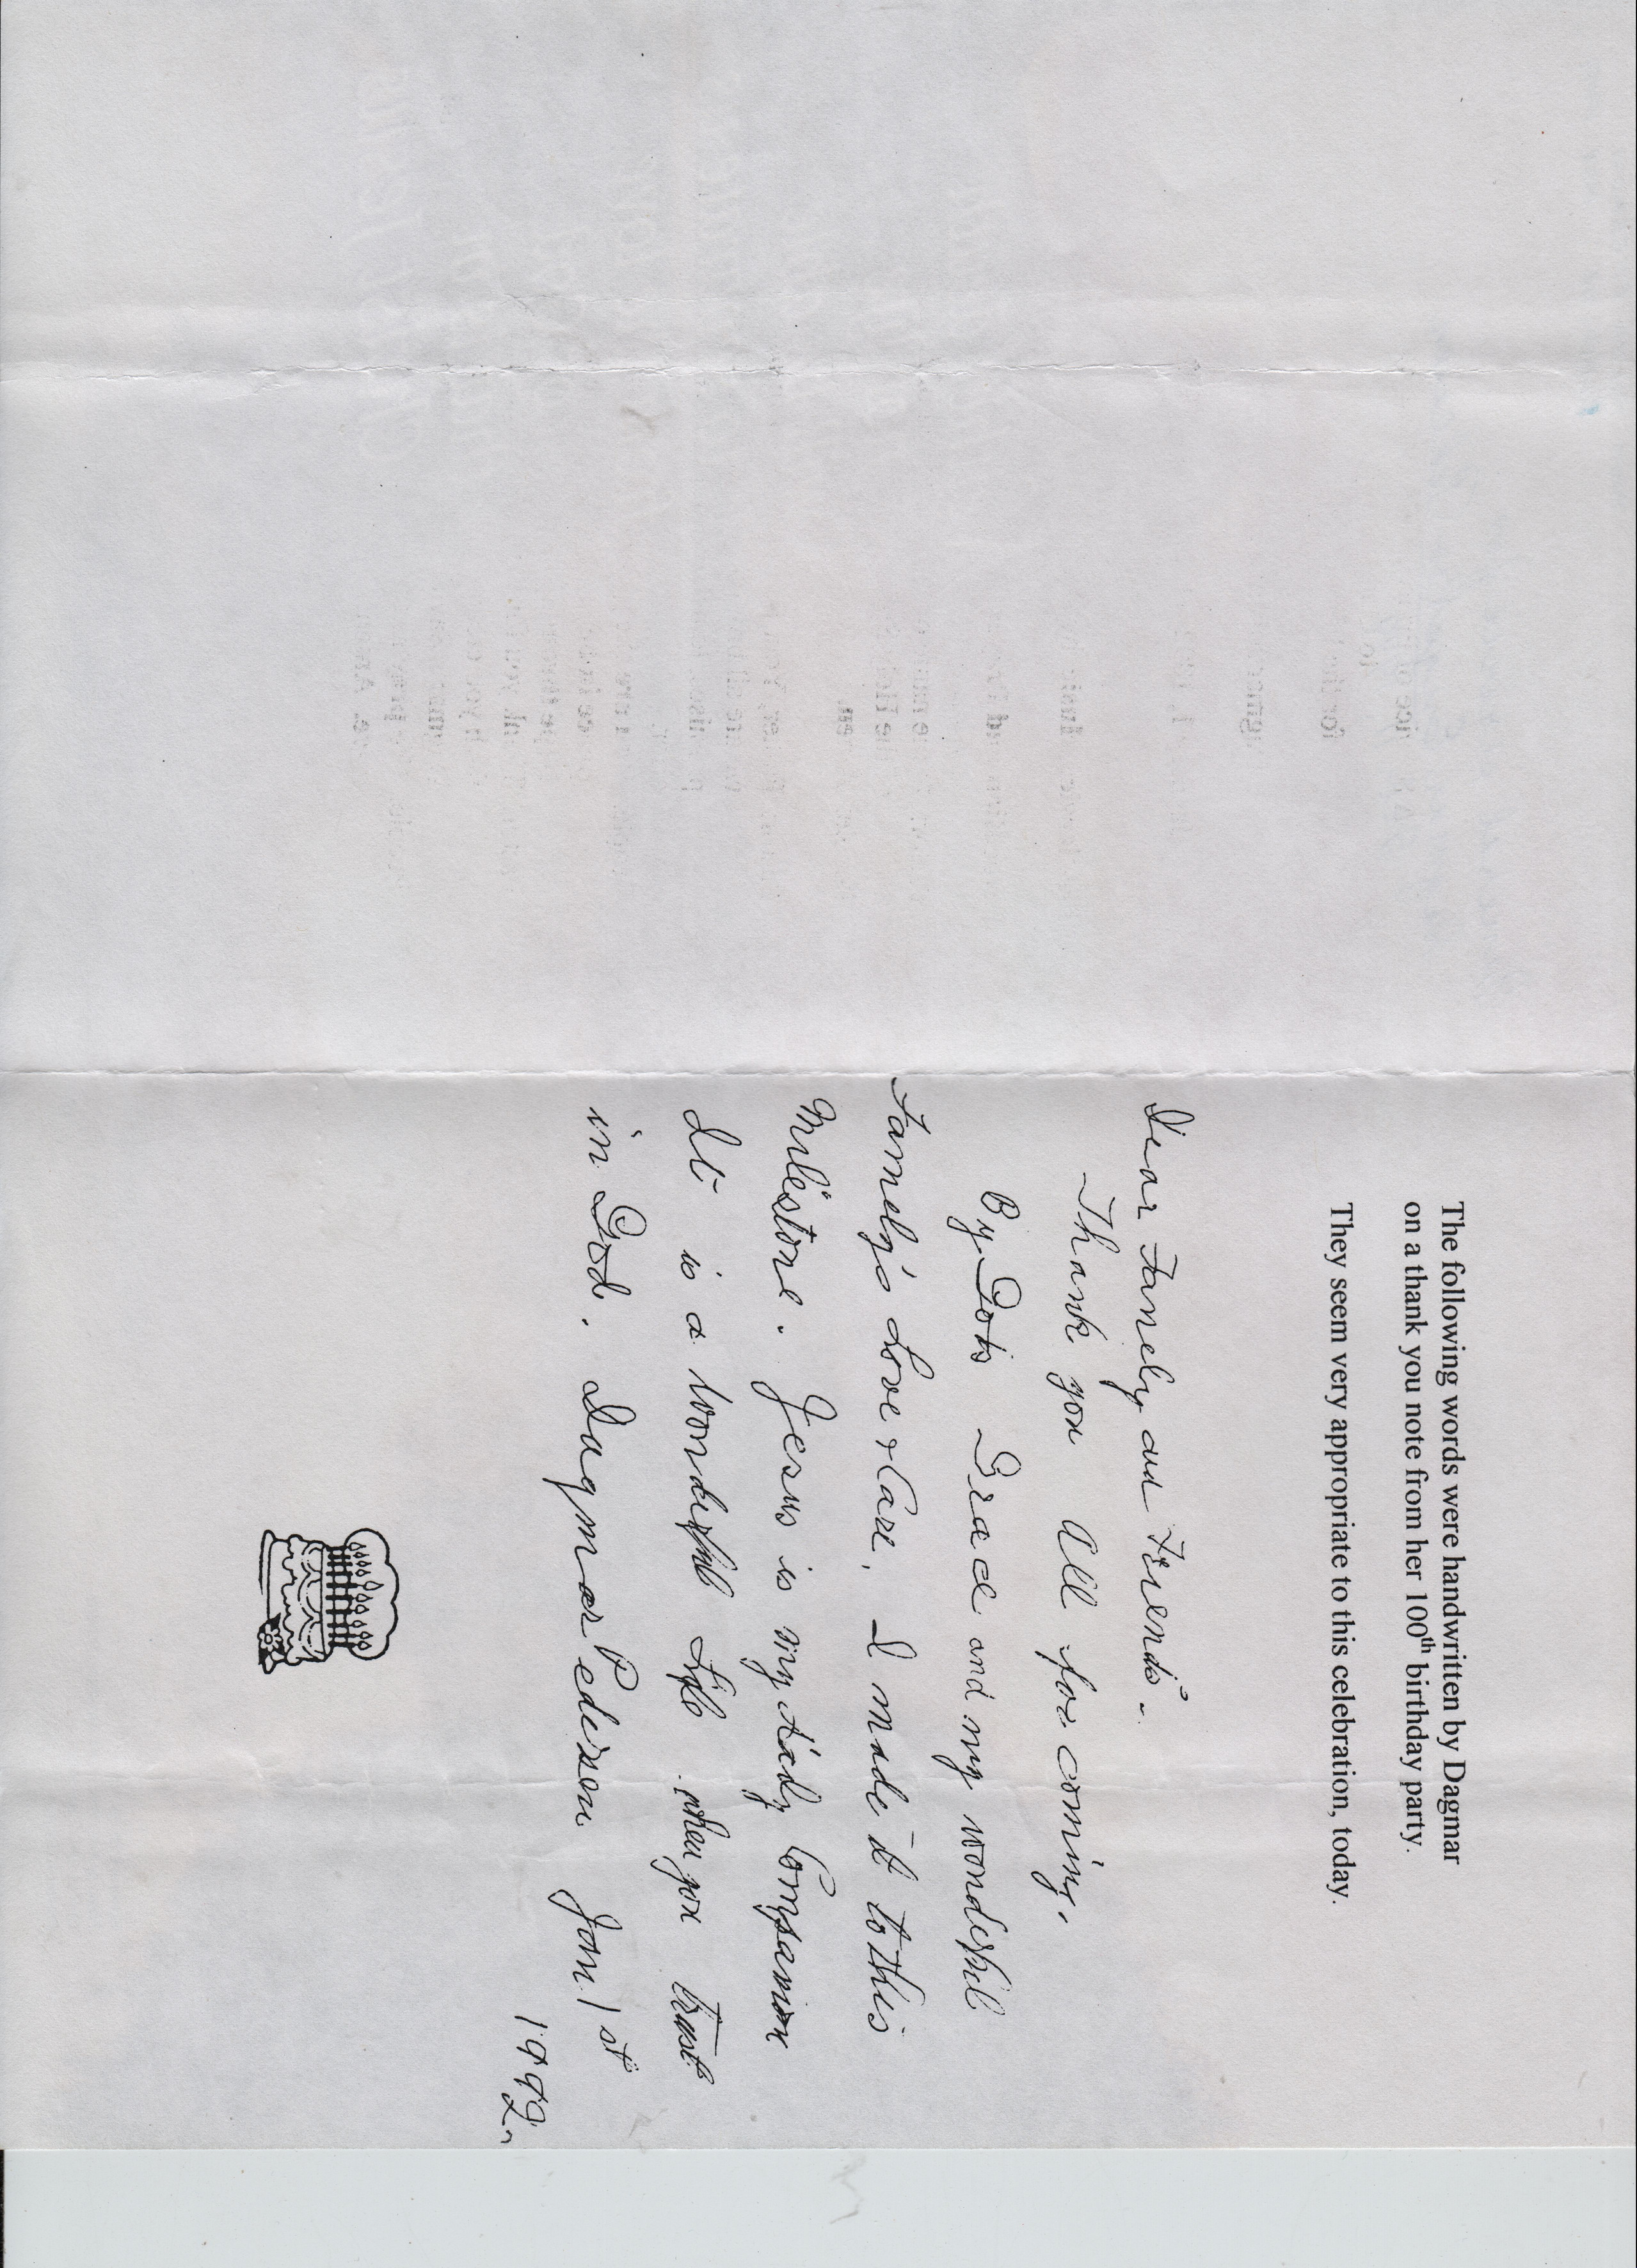 The following words were handwritten by Dagmar
on a thank you note from her 100th birthday party.
They seem very appropriate to this celebration, today.
Dear Famely and Friends.
Thank you All for coming.
By Gods Grace and my wonderful
Famely's Love & Care, I made it to this
Milestone. Jesus is my daily Companion
It is a Wonderful Life when you trust
in God. Dagmar Pedersen Jan 1st
1992.